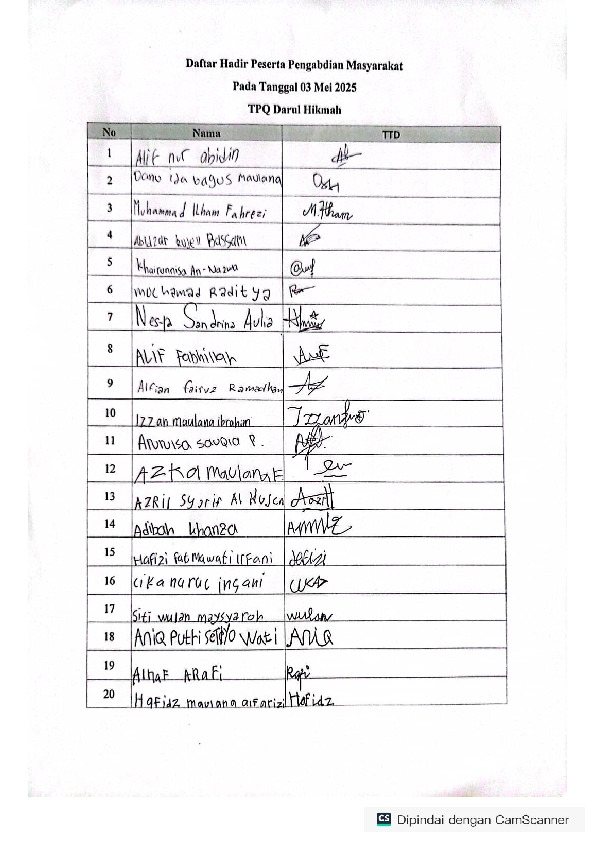 Daftar Hadir Peserta Pengabdian Masyarakat
Pada Tanggal 03 Mei 2025
TPQ Darul Hikmah
No Nama TTD
1 Alif nur abidin
2 bagus maulana
3 Muhammad Ilham Fahrezi M.Ilham
4 Bassam
5 Khairunnisa An-Nazwa
6 mochamad Raditya
7 Nesya Sandrina Aulia
8 Alif Fadhillah
9 Alfian fairuz Ramadhan
10 Izzan maulana ibrahim
11 P.
12 AZKA maulana
13 AZRIL Syarif Al
14 Adibah khanza
15 Hafizi fatmawati irfani
16 cika
17 Siti wulan maysyaroh wulan
18 ANIQ Putri Wati ANIQ
19 ARAFI
20 Hafidz maulana alfarizi Hafidz
CS Dipindai dengan CamScanner